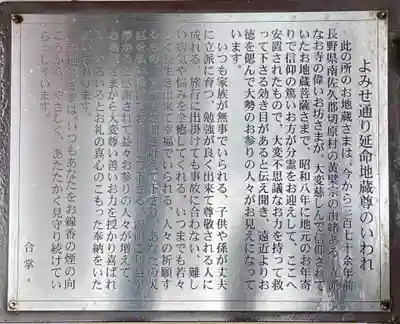 よみせ通り延命地蔵尊のいわれ
此の所のお地蔵さまは、今から二百七十余年前
長野県南佐久郡切原村の黄檗宗の由緒ある
なお寺の偉いお坊さまが、大変慈しんで信仰されて
いたお地蔵菩薩さまで、昭和八年に地元のお年寄
りで信仰の篤いお方が分霊をお迎えして、ここへ
安置されたもので、大変不思議なお力を持って救
って下さる効き目があると伝え聞き、遠近よりお
徳を偲んで大勢のお参りの人々がお見えになって
います。
いつも家族が無事でいられる、子供や孫が丈夫
に立派に育つ、勉強が良く出来て尊敬される人に
成れる、旅行に出掛けても事故に合わない、難し
い病気や悩みを全癒してくれる、いつまでも若々
しく長生き出来て幸福でいられる、人々の祈願す
お参りの人々が増えて、
お地蔵さまから大変尊い善いお力を授かり喜ばれ
て、いろいろとお礼の真心のこもった奉納をいた
だいております。
お地蔵さまは、いつもあなたをお線香の煙の向
こうから、やさしく、あたたかく見守り続けてい
らっしゃいます。
合掌。